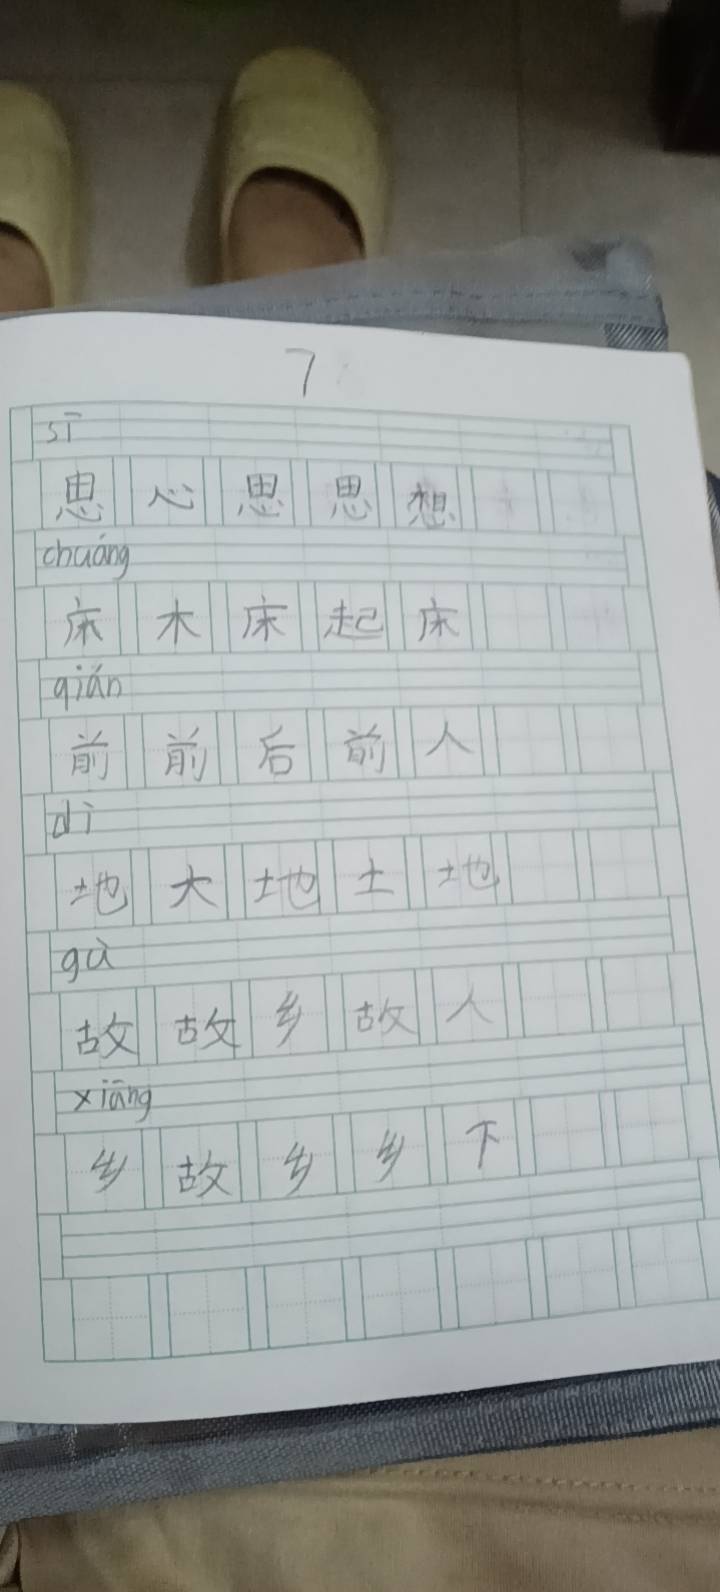 7
sī
思 心 思 思 想
chuáng
床 木 床 起 床
qián
前 前 后 前 人
dì
地 大 地 土 地
gù
故 故 乡 故 人
xiāng
乡 故 乡 乡 下